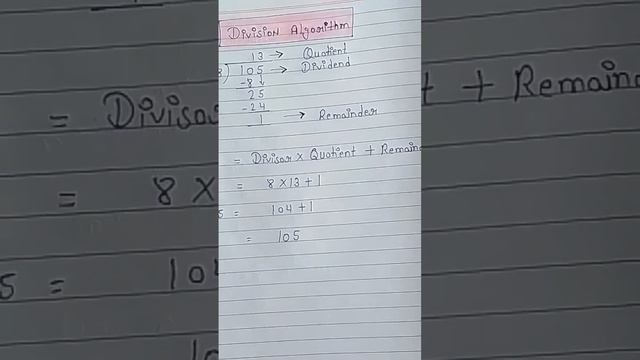 Division Algorithm
13 → Quotient
8) 105 → Dividend
-8↓
25
-24
1 → Remainder
= Divisor × Quotient + Remain
= 8 × 13 + 1
5 = 104 + 1
= 105